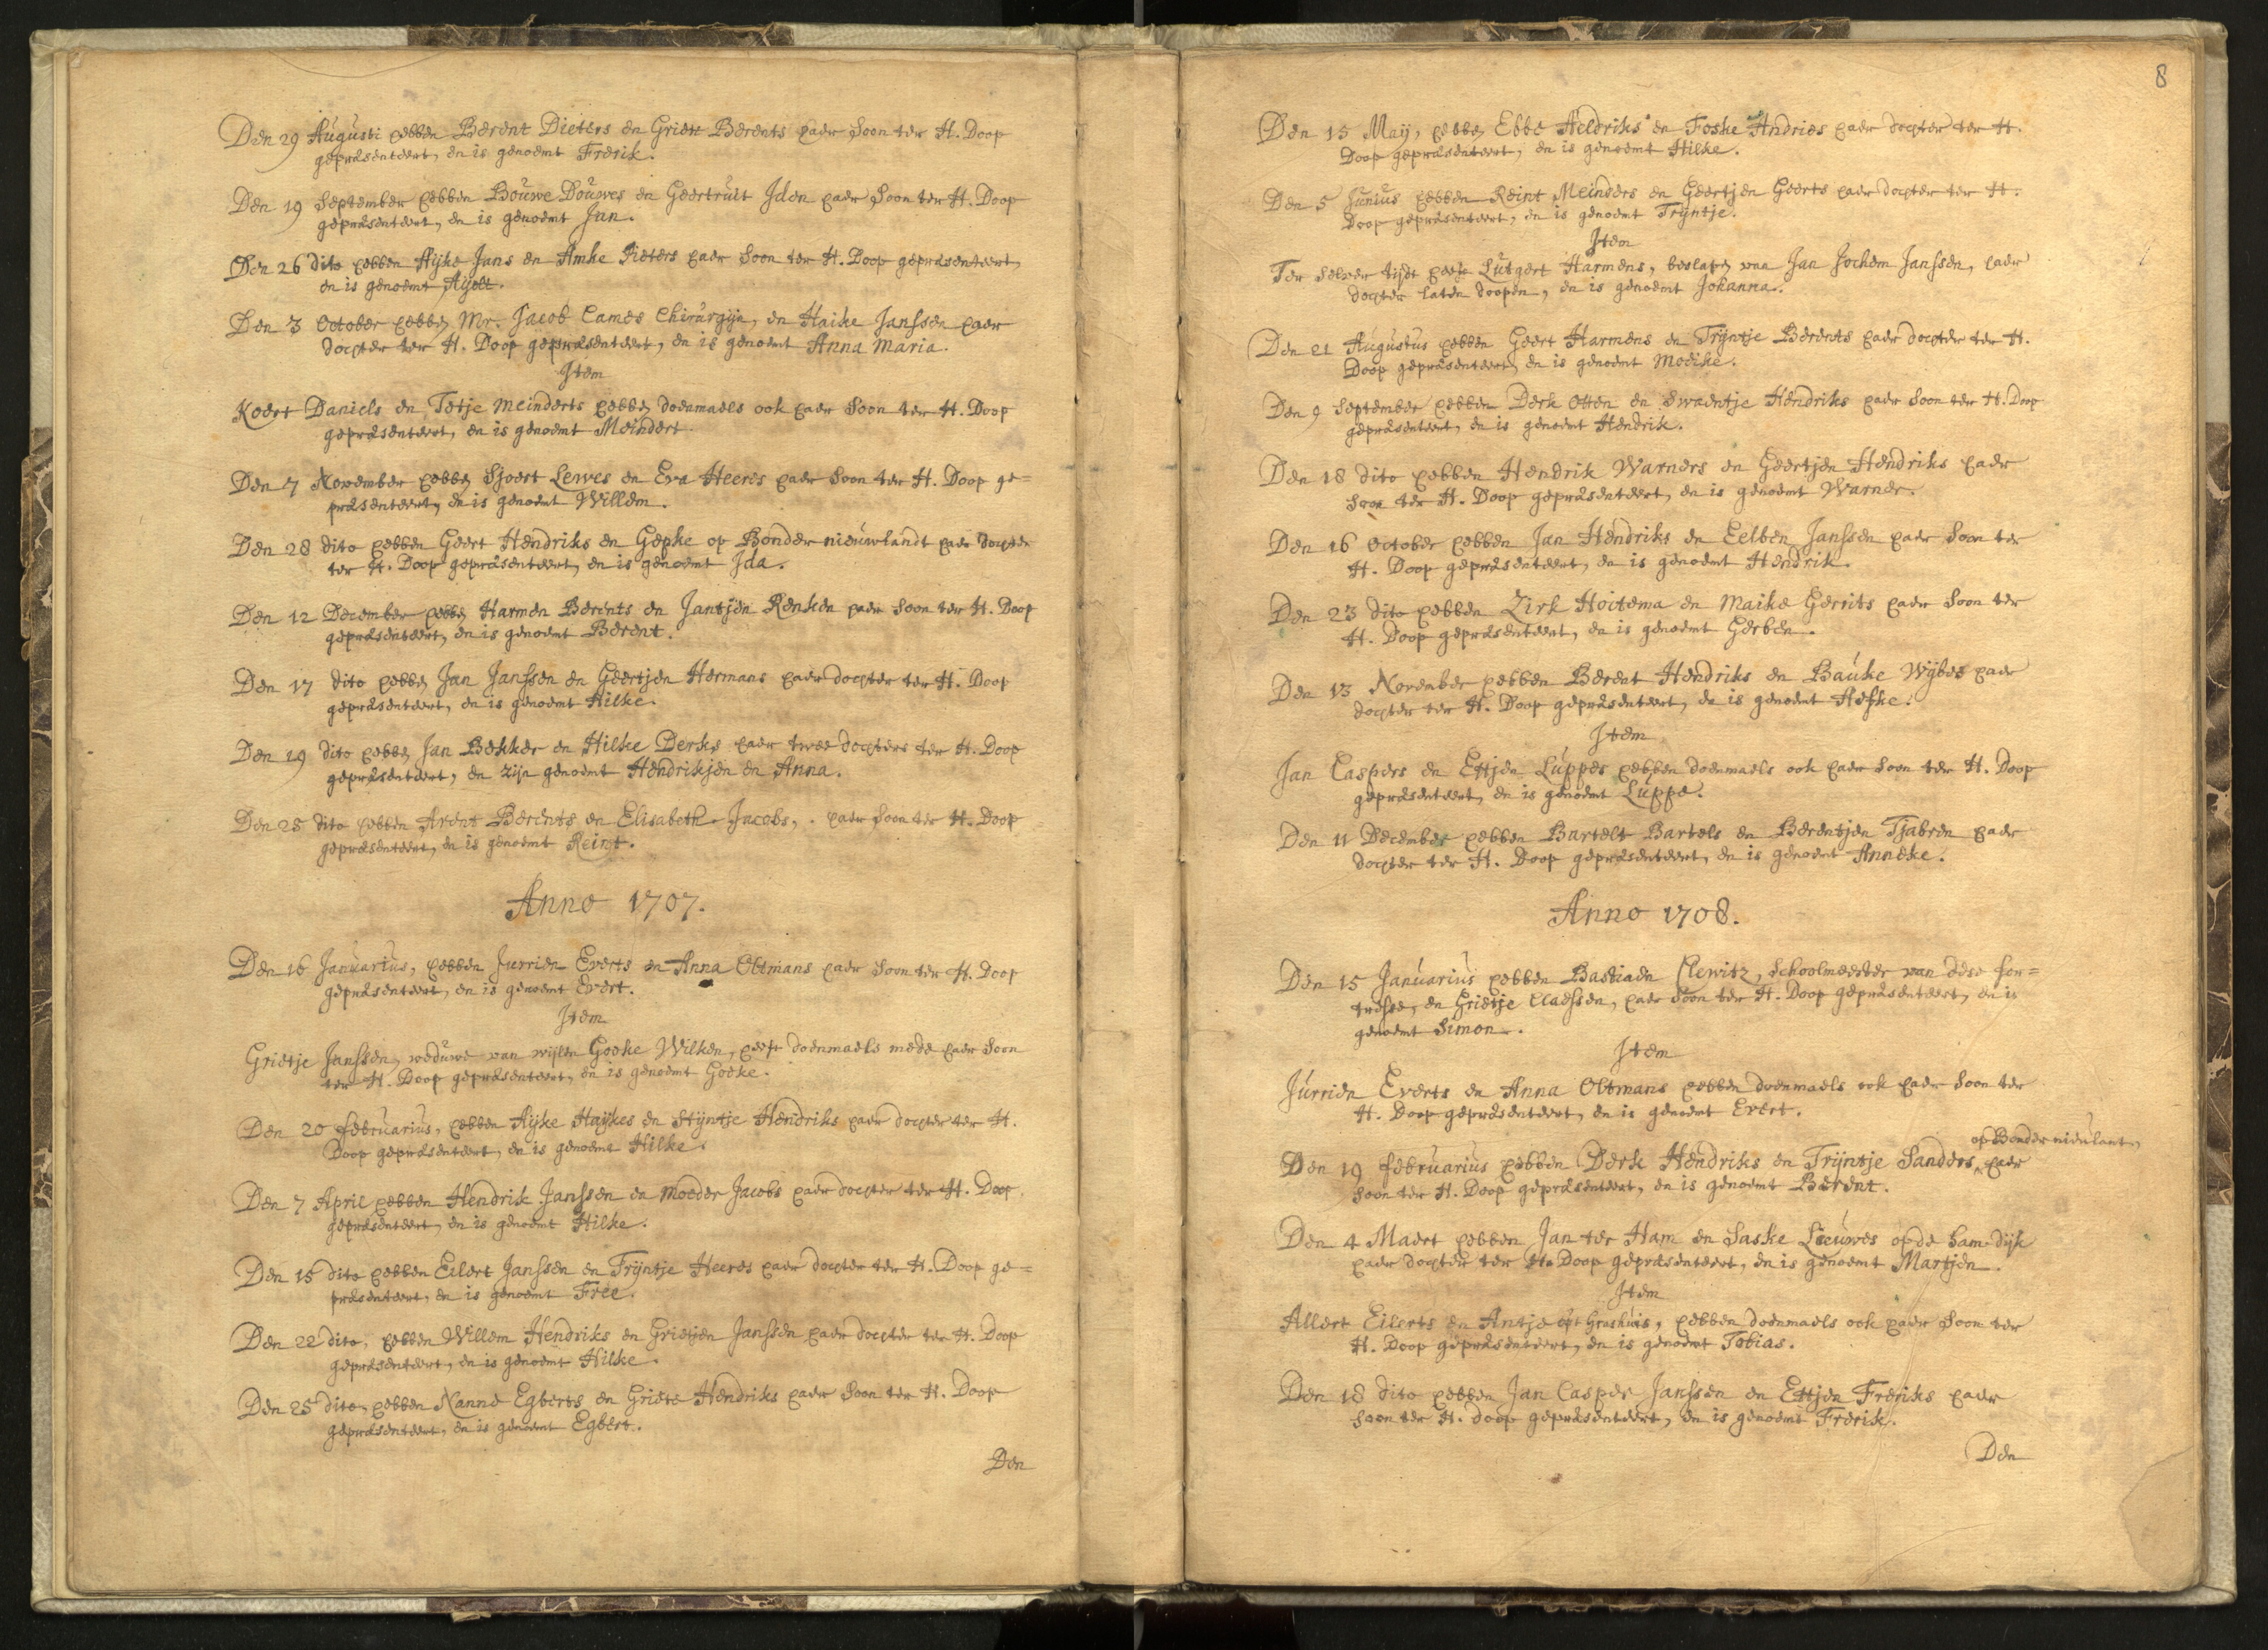 Den 29 Augusti hebben Berent Dieters en Griete Berents haer Soon ter H. Doop
gepræsenteert, en is genoemt Frerik.
Den 19 September hebben Bouwe Douwes en Geertruit Iden haer Soon ter H. Doop
gepræsenteert, en is genoemt Jan.
Den 26 dito hebben Aijke Jans en Amke Pieters haer Soon ter H. Doop gepræsenteert,
en is genoemt Aijelt.
Den 3 October hebben Mr. Jacob Cames Chirurgijn, en Haike Janssen haer
dochter ter H. Doop gepræsenteert, en is genoemt Anna Maria.
Item
Koert Daniels en Tetje Meinderts hebben doenmaels ook haer Soon ter H. Doop
gepræsenteert, en is genoemt Meindert.
Den 7 November hebben Sjoert Lewes en Eva Heeres haer Soon ter H. Doop ge=
præsenteert, en is genoemt Willem.
Den 28 dito hebben Geert Hendriks en Gepke op Bonder nieuwlandt haer dochter
ter H. Doop gepræsenteert, en is genoemt Ida.
Den 12 December hebben Harmen Berents en Jantjen Renken haer Soon ter H. Doop
gepræsenteert, en is genoemt Berent.
Den 17 dito hebben Jan Janssen en Geertjen Hermans haer dochter ter H. Doop
gepræsenteert, en is genoemt Hilke.
Den 19 dito hebben Jan Bekker en Hilke Derks haer twee dochters ter H. Doop
gepræsenteert, en zijn genoemt Hendrikjen en Anna.
Den 25 dito hebben Arent Berents en Elisabeth Jacobs, haer Soon ter H. Doop
gepræsenteert, en is genoemt Reint.
Anno 1707.
Den 16 Januarius, hebben Jurrien Everts en Anna Oltmans haer Soon ter H. Doop
gepræsenteert, en is genoemt Evert.
Item
Grietje Janssen, weduwe van wijlen Goeke Wilken, heeft doenmaels mede haer Soon
ter H. Doop gepræsenteert, en is genoemt Goeke.
Den 20 Februarius, hebben Aijke Haijkes en Stijntje Hendriks haer dochter ter H.
Doop gepræsenteert, en is genoemt Hilke.
Den 7 April hebben Hendrik Janssen en Moeder Jacobs haer dochter ter H. Doop
gepræsenteert, en is genoemt Hilke.
Den 15 dito hebben Eilert Janssen en Trijntje Heeres haer dochter ter H. Doop ge=
præsenteert, en is genoemt Free.
Den 22 dito, hebben Willem Hendriks en Grietjen Janssen haer dochter ter H. Doop
gepræsenteert, en is genoemt Hilke.
Den 25 dito, hebben Nanne Egberts en Griete Hendriks haer Soon ter H. Doop
gepræsenteert, en is genoemt Egbert.
Den
8
Den 15 Maij, hebben Ebbe Heldriks en Foske Andries haer dochter ter H.
Doop gepræsenteert, en is genoemt Hilke.
Den 5 Junius hebben Reint Meinders en Geertjen Geerts haer dochter ter H.
Doop gepræsenteert, en is genoemt Trijntje.
Item
Ter selver tijdt heeft Lutgert Harmens, beslapen van Jan Jochem Janssen, haer
dochter laten doopen, en is genoemt Johanna.
Den 21 Augustus hebben Geert Harmens en Trijntje Berents haer dochter ter H.
Doop gepræsenteert, en is genoemt Moeike.
Den 9 September hebben Derk Otten en Swaentje Hendriks haer Soon ter H. Doop
gepræsenteert, en is genoemt Hendrik.
Den 18 dito hebben Hendrik Warners en Geertjen Hendriks haer
Soon ter H. Doop gepræsenteert, en is genoemt Warner.
Den 16 October hebben Jan Hendriks en Eelben Janssen haer Soon ter
H. Doop gepræsenteert, en is genoemt Hendrik.
Den 23 dito hebben Zirk Hoitema en Maike Gerrits haer Soon ter
H. Doop gepræsenteert, en is genoemt Gerben.
Den 13 November hebben Berent Hendriks en Bauke Wijbes haer
dochter ter H. Doop gepræsenteert, en is genoemt Heske.
Item
Jan Caspers en Ettjen Luppes hebben doenmaels ook haer Soon ter H. Doop
gepræsenteert, en is genoemt Luppe.
Den 11 December hebben Bartelt Bartels en Berentjen Tjabren haer
dochter ter H. Doop gepræsenteert, en is genoemt Anneke.
Anno 1708.
Den 15 Januarius hebben Bastiaen Clewitz, Schoolmeester van dese for=
tresse, en Grietje Claessen, haer Soon ter H. Doop gepræsenteert, en is
genoemt Simon.
Item
Jurrien Everts en Anna Oltmans hebben doenmaels ook haer Soon ter
H. Doop gepræsenteert, en is genoemt Evert.
op Bonder nieulant,
Den 19 Februarius hebben Derk Hendriks en Trijntje Sanders, haer
Soon ter H. Doop gepræsenteert, en is genoemt Berent.
Den 4 Maert hebben Jan ter Ham en Saske Leeuwes op de Ham-dijk
haer dochter ter H. Doop gepræsenteert, en is genoemt Martjen.
Item
Allert Eilerts en Antje opt Grashuis, hebben doenmaels ook haer Soon ter
H. Doop gepræsenteert, en is genoemt Tobias.
Den 18 dito hebben Jan Casper Janssen en Ettjen Freriks haer
Soon ter H. Doop gepræsenteert, en is genoemt Frerik.
Den